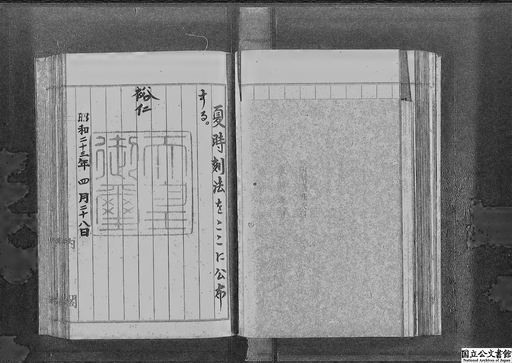 夏時刻法をここに公布
する。
裕仁
天皇御璽
昭和二十三年四月二十八日
内閣
国立公文書館
National Archives of Japan